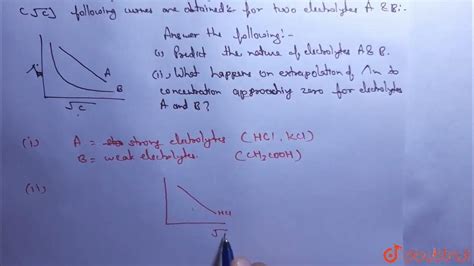 (√C) following curves are obtained for two electrolytes A & B:-
Answer the following:-
(i) Predict the nature of electrolytes A & B.
(ii) What happens on extrapolation of Λm to
concentration approaching zero for electrolytes
A and B?
A
B
√C
(i) A = strong electrolytes (HCl, KCl)
B = weak electrolytes (CH3COOH)
(ii)
HCl
doubtnut